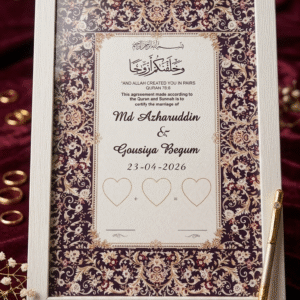 بسم الله الرحمن الرحيم
وَخَلَقْنَاكُمْ أَزْوَاجًا
"AND ALLAH CREATED YOU IN PAIRS
QURAN 78:8
This agreement made according to
the Quran and Sunnah is to
certify the marriage of
Md Azharuddin
&
Gousiya Begum
23-04-2026